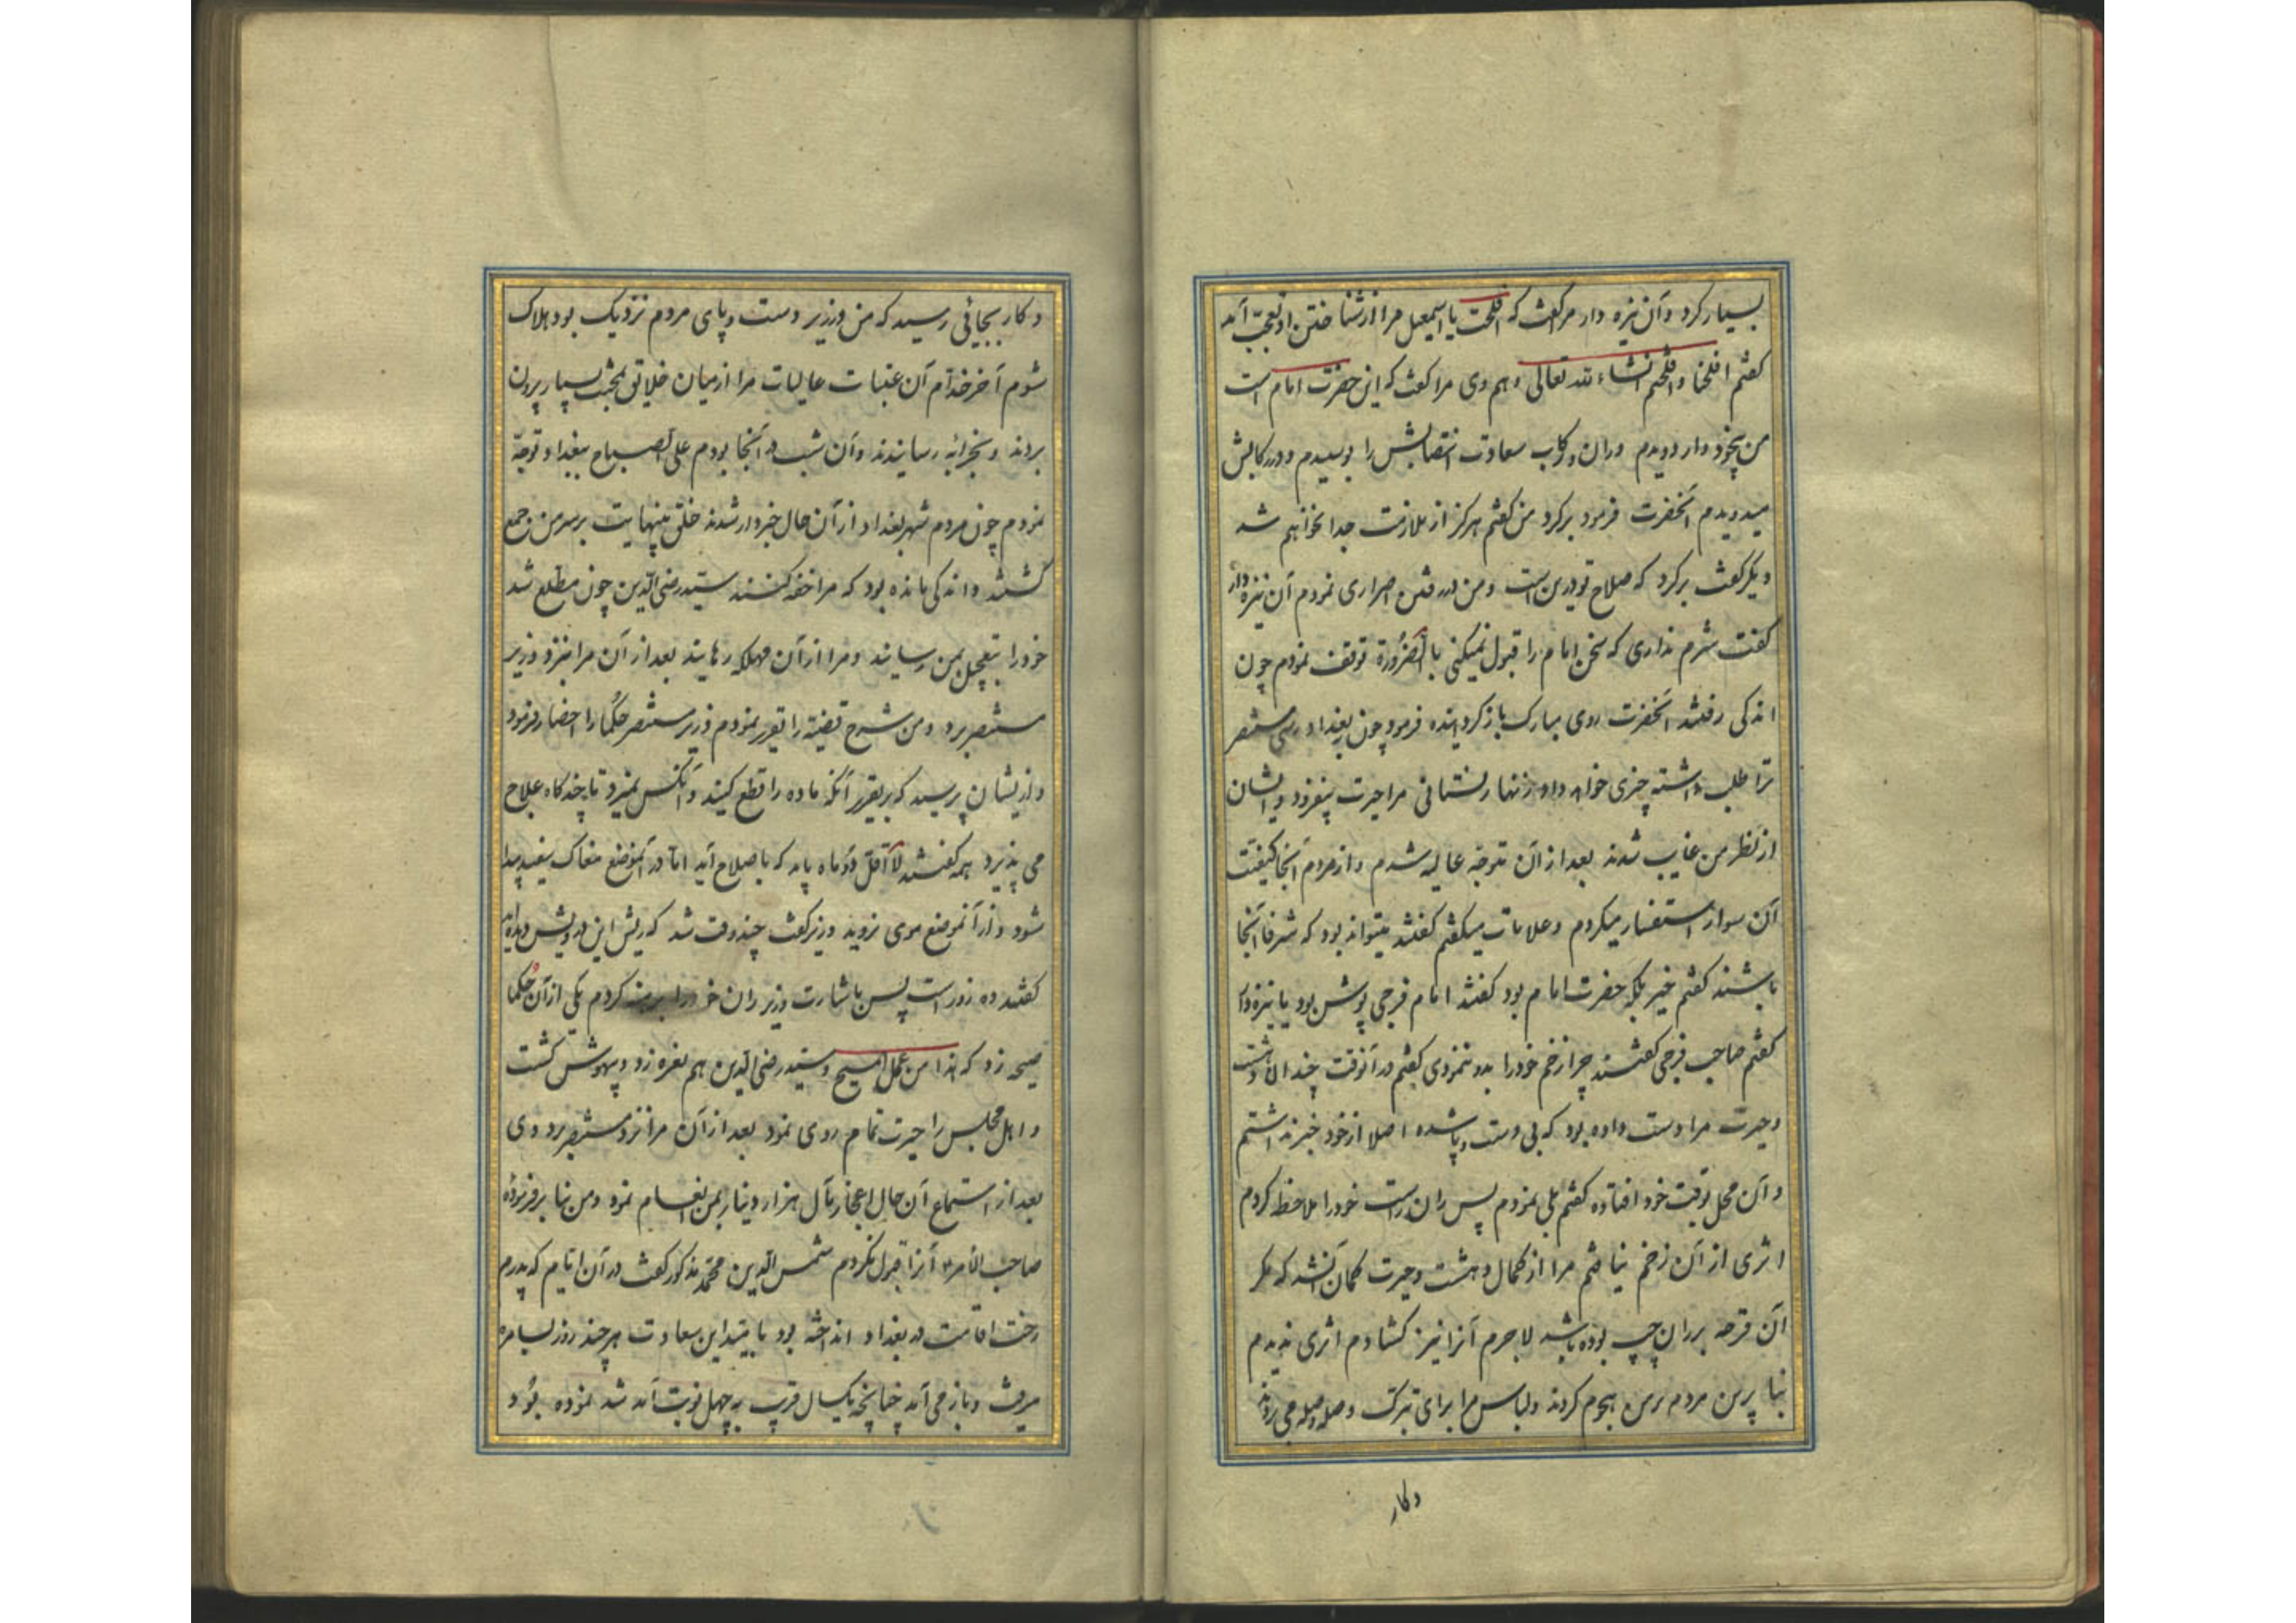 بسیار کرد و آن نیزه دار مرا گفت که افلحت یا اسمعیل مرا از شناختن او تعجب آمد
گفتم افلحنا و افلحتم انشاء الله تعالی و هم وی مرا گفت که این حضرت امام است
من بیخود وار دویدم و ران و رکاب سعادت انتصابش را بوسیدم و در رکابش
میدویدم آنحضرت فرمود برگرد من گفتم هرگز از ملازمت جدا نخواهم شد
دیگر گفت برگرد که صلاح تو درین است و من در رفتن اصراری نمودم آن نیزه دار
گفت شرم نداری که سخن امام را قبول نمیکنی بالضرورة توقف نمودم چون
اندکی رفتند آنحضرت روی مبارک باز گردانیده فرمود چون ببغداد رسی مستنصر
ترا طلب داشته چیزی خواهد داد زنهار نستانی مرا حیرت بیفزود و ایشان
از نظر من غایب شدند بعد از آن متوجه عالیه شدم و از مردم آنجا کیفیت
آن سوار استفسار میکردم و علامات میگفتم گفتند میتواند بود که شرفا آنجا
باشند گفتم خیر بلکه حضرت امام بود گفتند امام فرجی پوش بود یا نیزه دار
گفتم صاحب فرجی گفتند چرا زخم خود را بدو ننمودی گفتم در آنوقت چندان دهشت
و حیرت مرا دست داده بود که بی دست و پا شده اصلا از خود خبر نداشتم
و آن محل بوقت خود افتاده گفتم بلی نمودم پس ران راست خود را ملاحظه کردم
اثری از آن زخم نیافتم مرا از کمال دهشت و حیرت گمان آن شد که مگر
آن قرحه بر ران چپ بوده باشد لاجرم آنرا نیز گشادم اثری ندیدم
بنا برین مردم بر من هجوم کردند و لباس مرا برای تبرک وصله وصله می ربودند
و کار
و کار بجائی رسید که من در زیر دست و پای مردم نزدیک بود هلاک
شوم آخر خدام آن عتبات عالیات مرا از میان خلایق بمحنت بسیار بیرون
بردند و بخزانه رسانیدند و آن شب در آنجا بودم علی الصباح ببغداد توجه
نمودم چون مردم شهر بغداد از آن حال خبردار شدند خلق بینهایت بر سر من جمع
گشتند و اندکی مانده بود که مرا خفه کنند سید رضی الدین چون مطلع شد
خود را بتعجیل بمن رسانید و مرا از آن مهلکه رهانید بعد از آن مرا بنزد وزیر
مستنصر برد و من شرح قضیه را تقریر نمودم وزیر مستنصر حکما را احضار فرمود
و از ایشان پرسید که بر تقدیر آنکه ماده را قطع کنید و آنکس نمیرد تا چند گاه علاج
می پذیرد همه گفتند لا اقل دو ماه باید که باصلاح آید اما در آنموضع مغاک سفید پیدا
شود و از آنموضع موی نروید وزیر گفت چند وقت شد که ریش این درویش دیده اید
گفتند ده روز است پس باشارت وزیر ران خود را برهنه کردم یکی از آن حکما
صیحه زد که هذا من عمل المسیح و سید رضی الدین هم نعره زد و بیهوش گشت
و اهل مجلس را حیرت تمام روی نمود بعد از آن مرا نزد مستنصر برد و وی
بعد از استماع آن حال اعجاز مآل هزار دینار بمن انعام نمود و من بنا بر فرموده
صاحب الامر آنرا قبول نکردم شمس الدین محمد مذکور گفت در آن ایام که پدرم
رخت اقامت در بغداد انداخته بود بامید این سعادت هر چند روز بسامره
میرفت و باز می آمد چنانچه یکسال قریب به چهل نوبت آمد شد نموده بود و